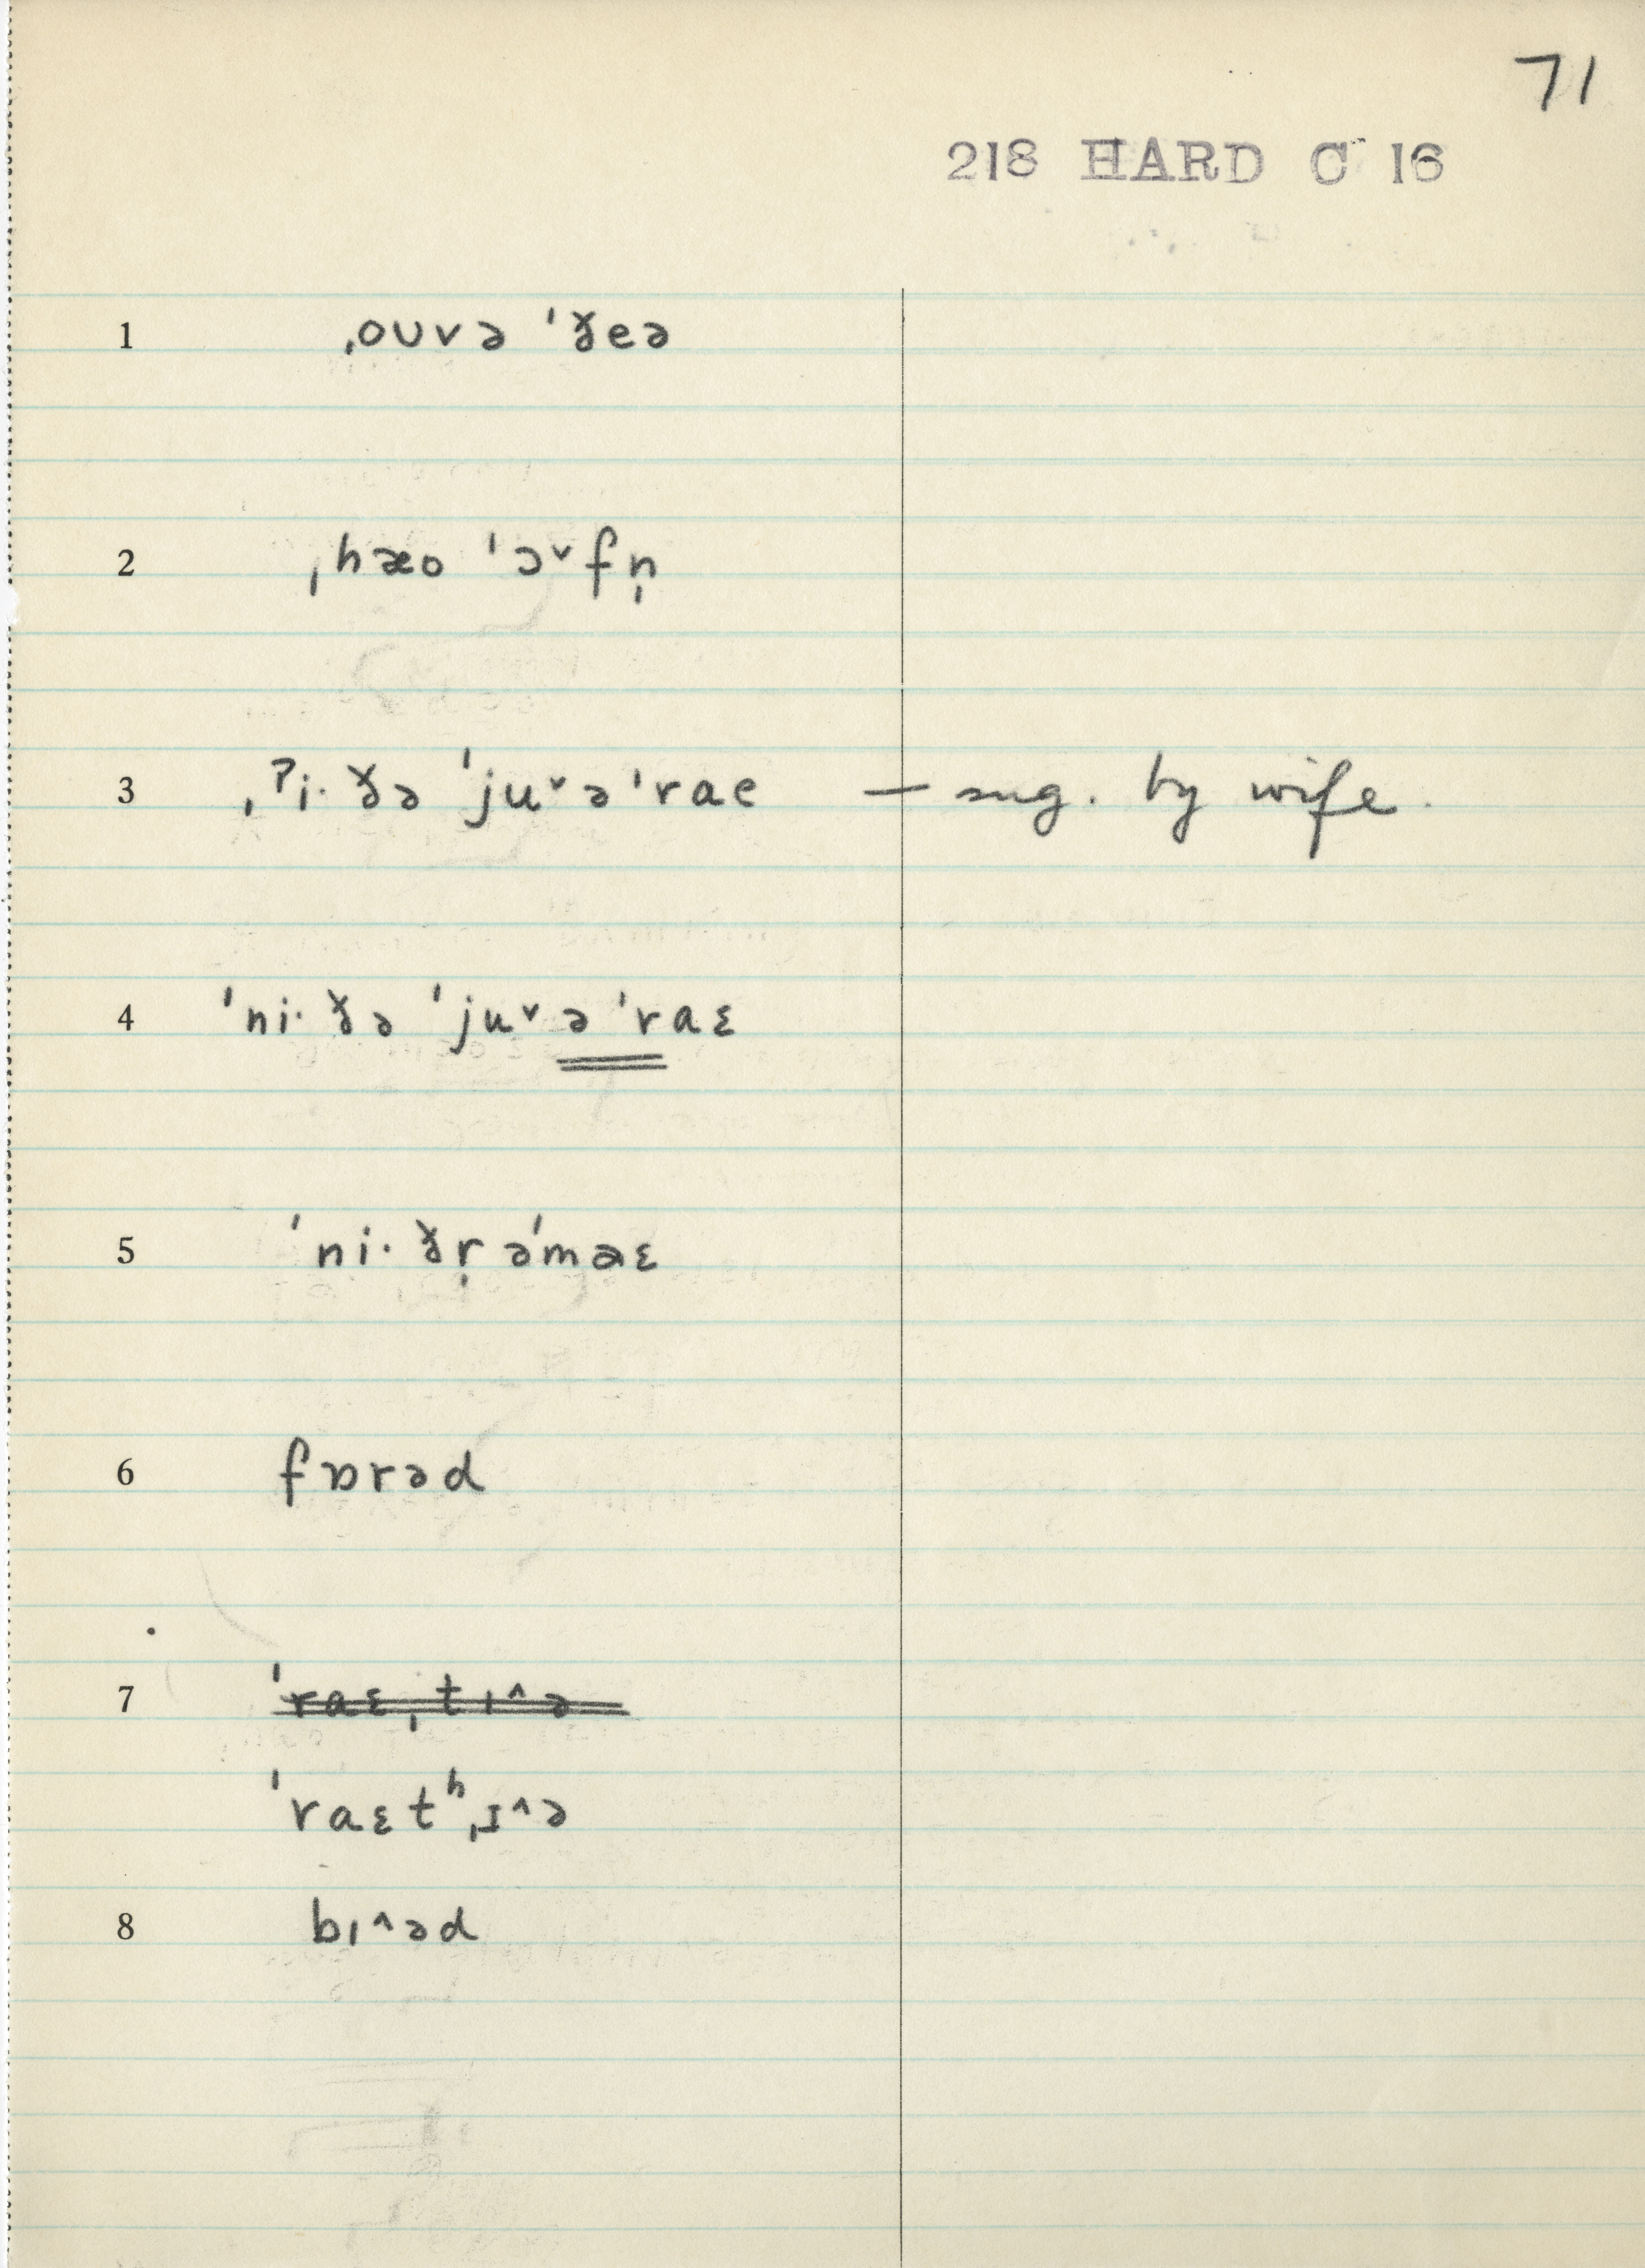 71
218 HARD C 16
1 ˌouvə ˈɣ̵eə
2 ˌhæo ˈɔ˅fn̩
3 ˌˀi· ðə ˈju˅əˈrae — sug. by wife.
4 ˈni· ðə ˈju˅ə ˈraɛ
5 ˈni· ðr̩ əˈmaɛ
6 fɒrəd
7 ˈraɛˌtɪ^ə
ˈraɛtʰˌɪ^ə
8 bɪ^əd